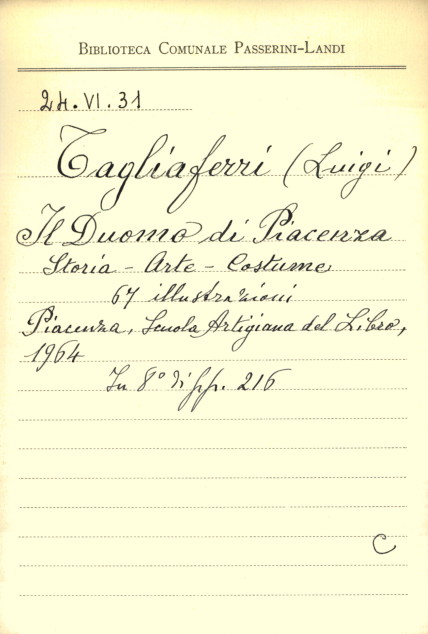 Biblioteca Comunale Passerini-Landi
24.VI.31
Tagliaferri (Luigi)
Il Duomo di Piacenza
Storia - Arte - Costume
67 illustrazioni
Piacenza, Scuola Artigiana del Libro,
1964
In 8° di pp. 216
C